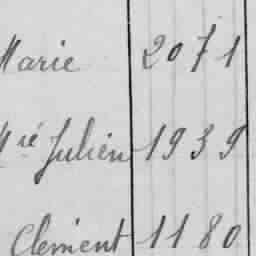 Marie 2071
Mié Julien 1939
Clément 1180